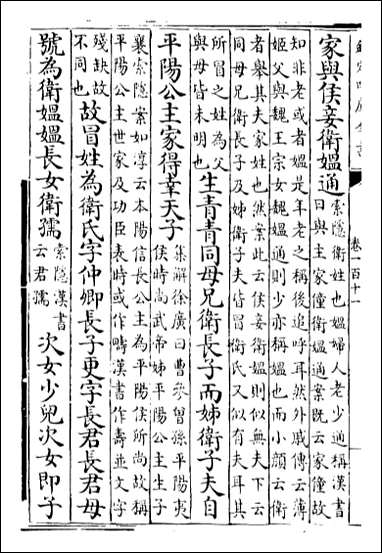 欽定四庫全書
卷一百十一
家與侯妾衛媼通
索隱衛姓也媼婦人老少通稱漢書
曰與主家僮衛媼通案既云家僮故
知非老或者媼是年老之稱後追呼耳然外戚傳云薄
姬父與魏王宗女魏媼通則少亦稱媼也而小顔云衛
者舉其夫家姓也然案此云侯妾衛媼則似無夫下云
同母兄衛長子及姊衛子夫皆冒衛氏又似有夫耳其
所冒之姓為父
與母皆未明也
生青青同母兄衛長子而姊衛子夫自
平陽公主家得幸天子
集解徐廣曰曹參曾孫平陽夷
侯時尚武帝姊平陽公主生子
襄索隱案如淳云本陽信長公主為平陽侯所尚故稱
平陽公主世家及功臣表時或作疇漢書作壽並文字
殘缺故
不同也
故冒姓為衛氏字仲卿長子更字長君長君母
號為衛媼媼長女衛孺
索隱漢書
云君孺
次女少兒次女即子